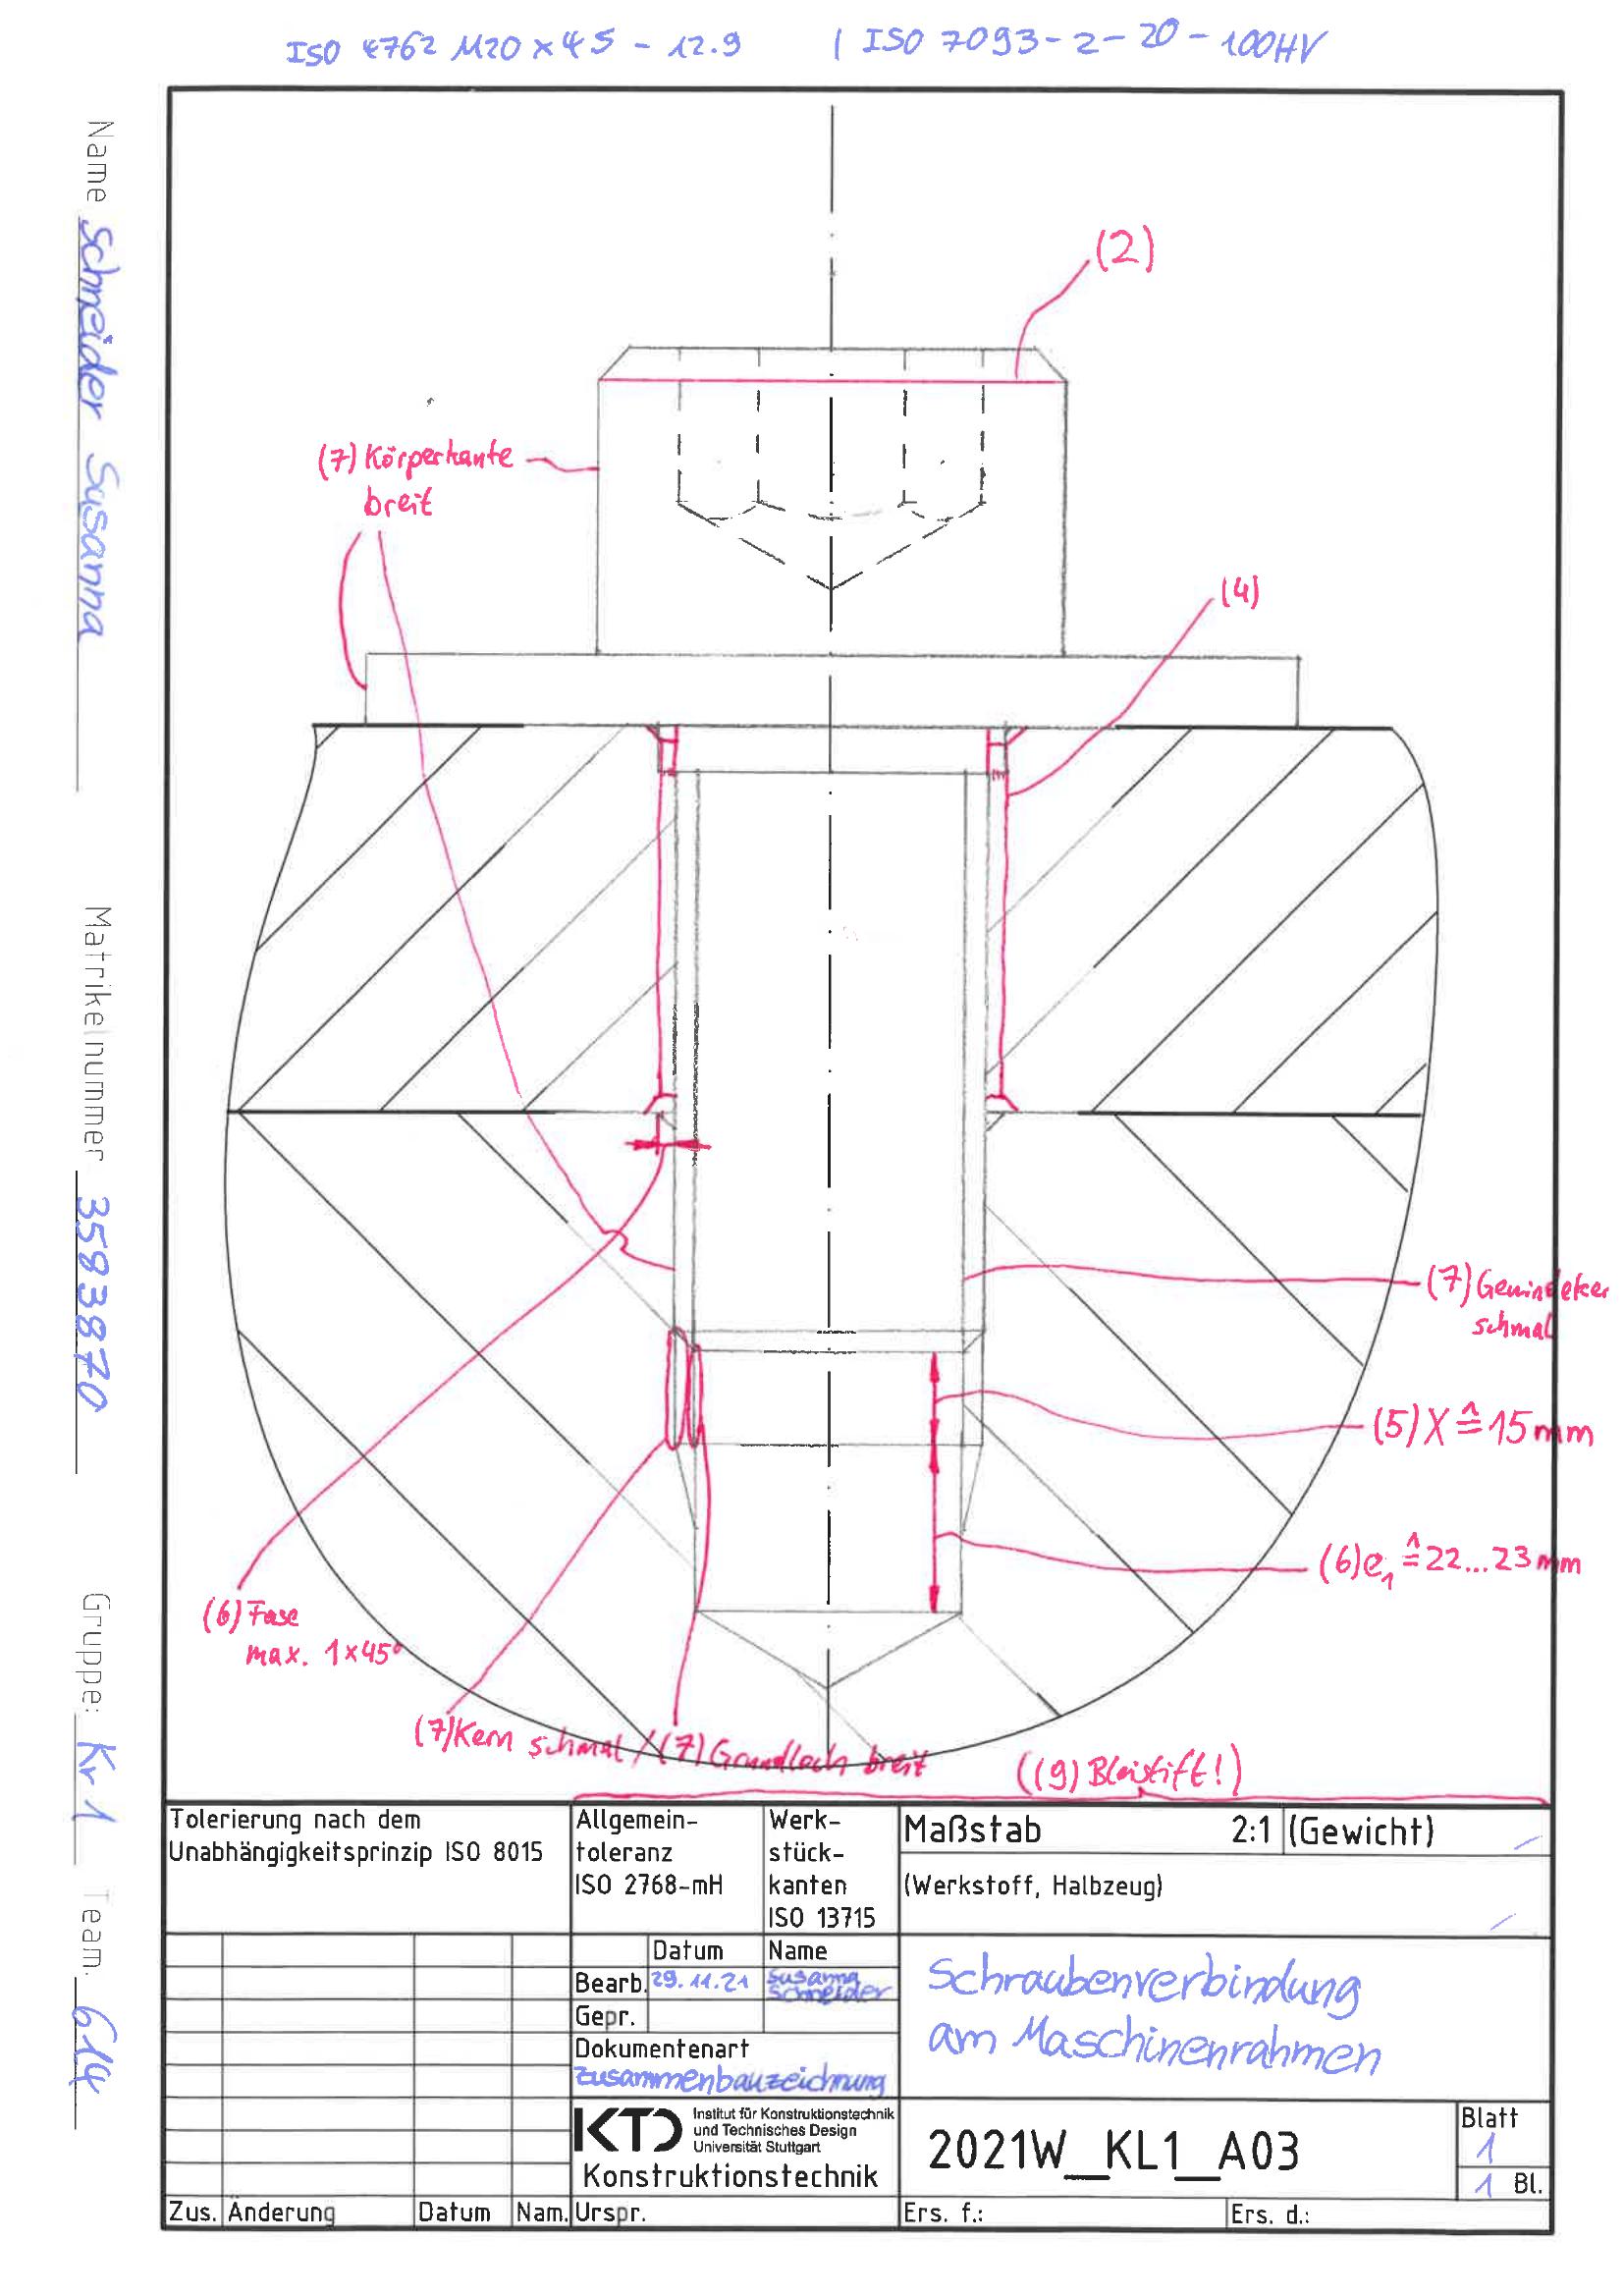 ISO 4762 M20 x 45 - 12.9 | ISO 7093-2-20-100HV
Name Schneider Susanna
Matrikelnummer 3583870
Gruppe: Kr 1 Team: 614
(2)
(7) Körperkante
breit
(4)
(7) Gewindeker
schmal
(5) X ≙ 15 mm
(6) e₁ ≙ 22...23 mm
(6) Fase
max. 1x45°
(7) Kern schmal / (7) Grundloch breit
((9) Bleistift!)
Tolerierung nach dem
Unabhängigkeitsprinzip ISO 8015
Allgemein-
toleranz
ISO 2768-mH
Werk-
stück-
kanten
ISO 13715
Maßstab 2:1 (Gewicht) /
(Werkstoff, Halbzeug) /
Datum Name
Bearb. 29.11.21 Susanna
Schneider
Gepr.
Dokumentenart
Zusammenbauzeichnung
Schraubenverbindung
am Maschinenrahmen
KTD Institut für Konstruktionstechnik
und Technisches Design
Universität Stuttgart
Konstruktionstechnik
2021W_KL1_A03
Blatt
1
1 Bl.
Zus. Änderung Datum Nam. Urspr. Ers. f.: Ers. d.: